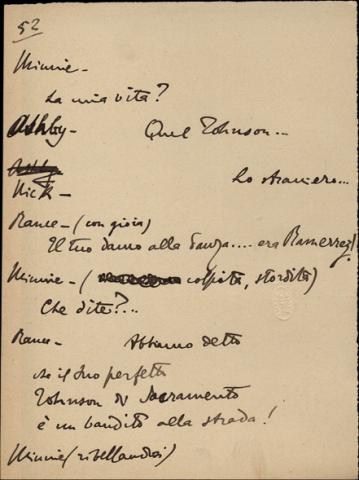 52
Minnie -
La mia vita?
Ashby - Quel Johnson...
Ashby
Nick - Lo straniero...
Rance - (con gioia)
Il tuo damo alla danza.... era Ramerrez!
Minnie - ( colpita, stordita)
Che dite?...
Rance - Abbiamo detto
che il suo perfetto
Johnson di Sacramento
è un bandito alla strada!
Minnie (ribellandosi)